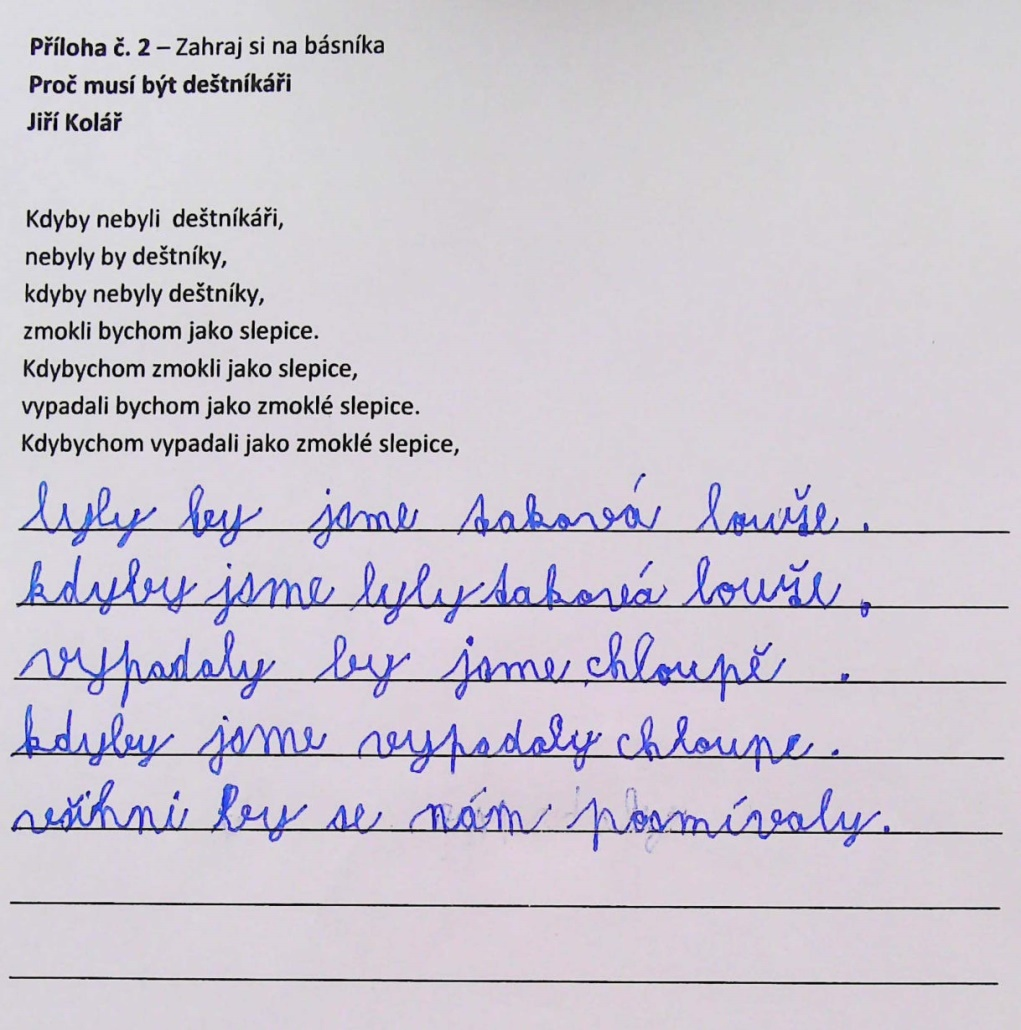 Příloha č. 2 – Zahraj si na básníka
Proč musí být deštníkáři
Jiří Kolář
Kdyby nebyli deštníkáři,
nebyly by deštníky,
kdyby nebyly deštníky,
zmokli bychom jako slepice.
Kdybychom zmokli jako slepice,
vypadali bychom jako zmoklé slepice.
Kdybychom vypadali jako zmoklé slepice,
byly by jsme taková louže.
kdyby jsme byly taková louže,
vypadaly by jsme chloupě.
kdyby jsme vypadaly chloupe.
všihni by se nám posmívaly.